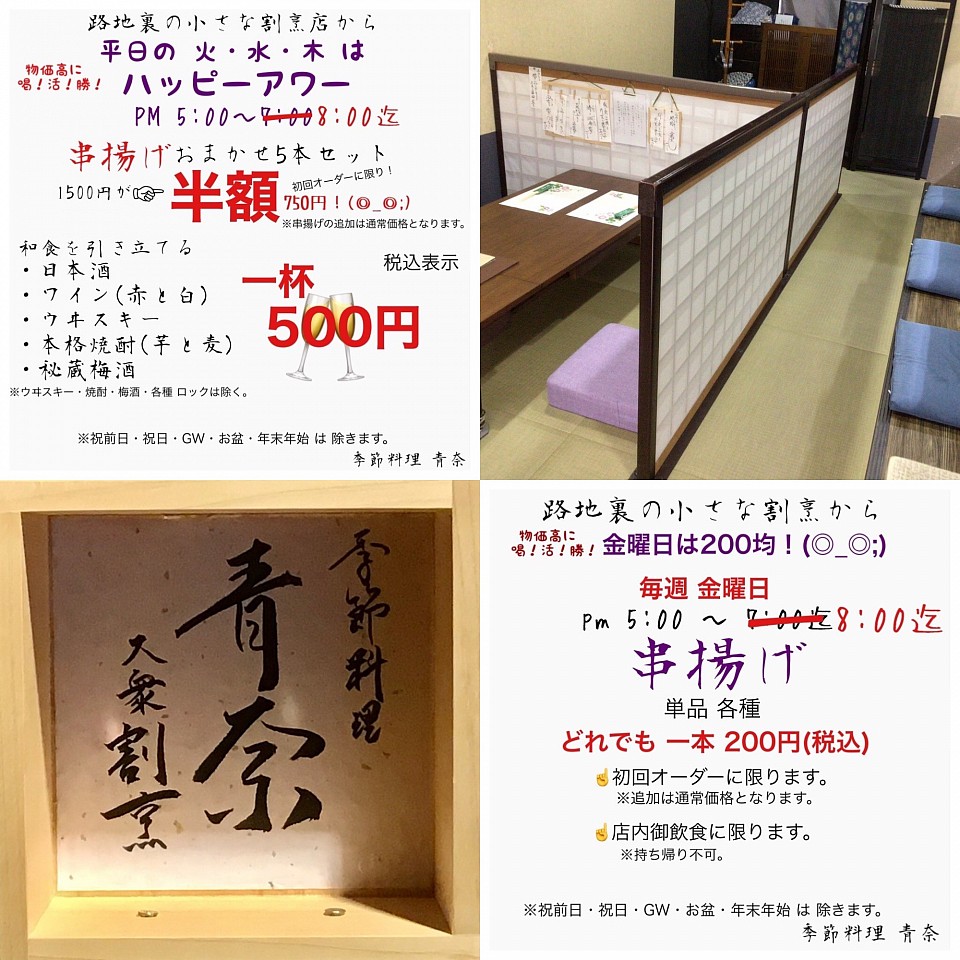 路地裏の小さな割烹店から
平日の 火・水・木 は
物価高に
喝！活！勝！
ハッピーアワー
PM 5:00〜7:00 8:00迄
串揚げおまかせ5本セット
1500円が☞ 半額 初回オーダーに限り！
750円！(◎_◎;)
※串揚げの追加は通常価格となります。
和食を引き立てる
税込表示
・日本酒
・ワイン(赤と白)
・ウヰスキー
・本格焼酎(芋と麦)
・秘蔵梅酒
一杯
500円
※ウヰスキー・焼酎・梅酒・各種 ロックは除く。
※祝前日・祝日・GW・お盆・年末年始 は 除きます。
季節料理 青奈
季節料理
青奈
大衆割烹
路地裏の小さな割烹から
物価高に
喝！活！勝！
金曜日は200均！(◎_◎;)
毎週 金曜日
Pm 5:00 〜 7:00迄 8:00迄
串揚げ
単品 各種
どれでも 一本 200円(税込)
☝初回オーダーに限ります。
※追加は通常価格となります。
☝店内御飲食に限ります。
※持ち帰り不可。
※祝前日・祝日・GW・お盆・年末年始 は 除きます。
季節料理 青奈